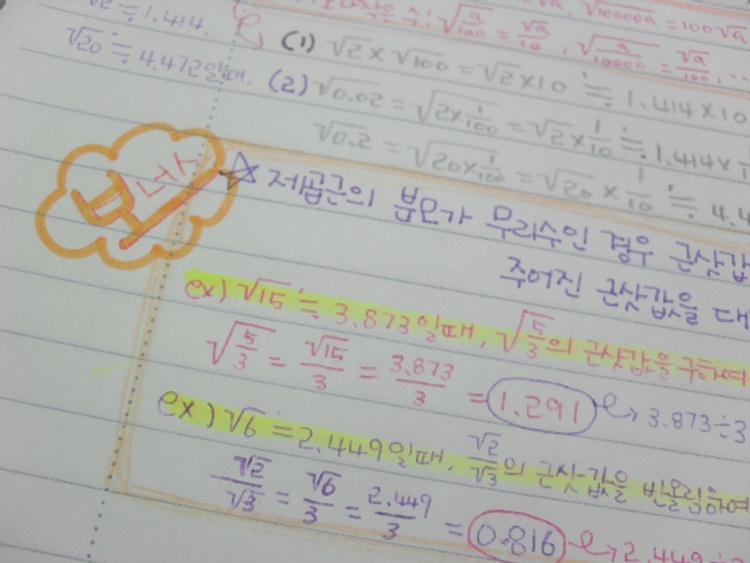 √2≒1.414,
√20≒4.472일때,
√(a/100)=√a/10, √(a/10000)=√a/100, ...
√10000a=100√a
(1) √2×√100=√2×10≒1.414×10
(2) √0.02=√(2×1/100)=√2×1/10≒1.414×
√0.2=√(20×1/100)=√20×1/10≒4.4
보너스
☆ 제곱근의 분모가 무리수인 경우 근삿값
주어진 근삿값을 대
ex) √15≒3.873일때, √(5/3)의 근삿값을 구하여
√(5/3)=√15/3=3.873/3=1.291→3.873÷3
ex) √6=2.449일때, √2/√3의 근삿값을 반올림하여
√2/√3=√6/3=2.449/3=0.816→2.449÷